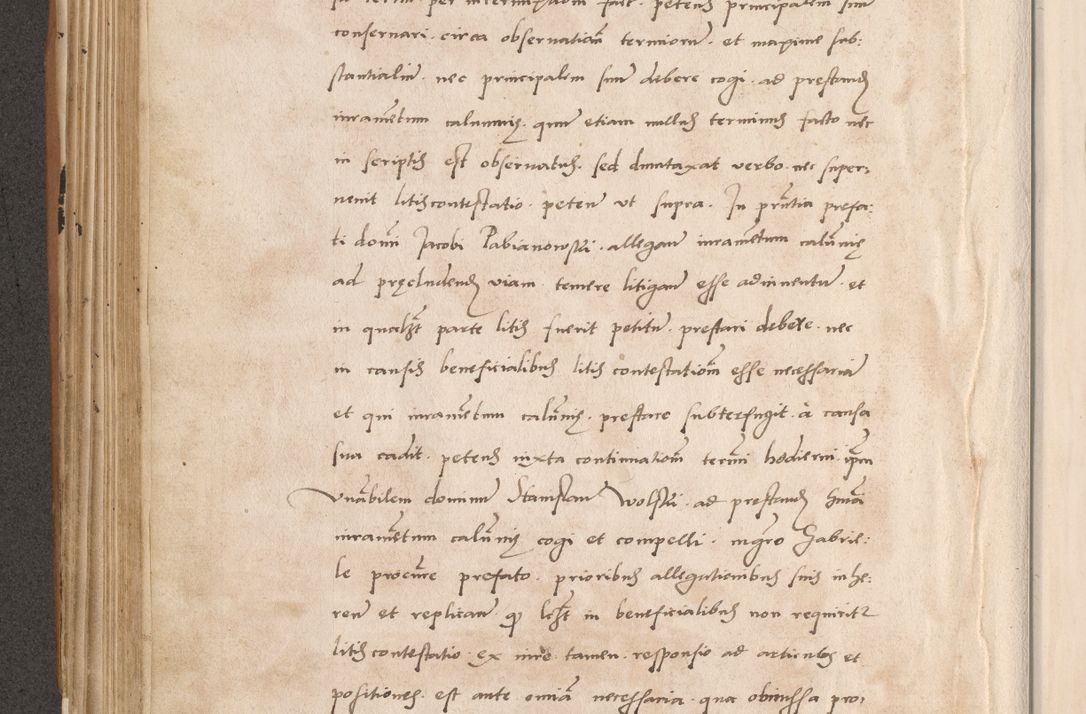 consernari. circa obseruationẽ terminorũ. et maxime sub:
stantialiũ. nec principalem suũ debere cogi. ad prestandũ
iuramẽtum calumnię. quũ etiam nullus terminus facto nec
in scriptis est obseruatus. sed duntaxat verbo. nec super,
uenit litis contestatio. petens vt supra. In prñtia prefa:
ti domĩ Jacobi Pabianowski. allegans iuramẽtum calũnię
ad pręcludendũ viam temere litigantiũ esse adinuentũ. et
in qualibet parte litis fuerit petitũ. prestari debere. nec
in causis beneficialibus litis contestationẽ esse necessariã
et qui iuramẽtum calũnię. prestare subterfugit. à causa
sua cadit. petens iuxta continuationẽ termĩ hodierni. ipm
venẽbilem dominũ Stanislaũ Wolski. ad prestandũ hmõi
iuramẽtum calũnię cogi et compelli. mgro Gabrie:
le procũre prefato. prioribus allegationibus suis inhe:
rens et replicans. q̃ licet in beneficialibus non requirit2
litis contestatio. ex iure tamen. responsio ad articulos et
positiones. est ante omĩa necessaria. qua obmissa pro,